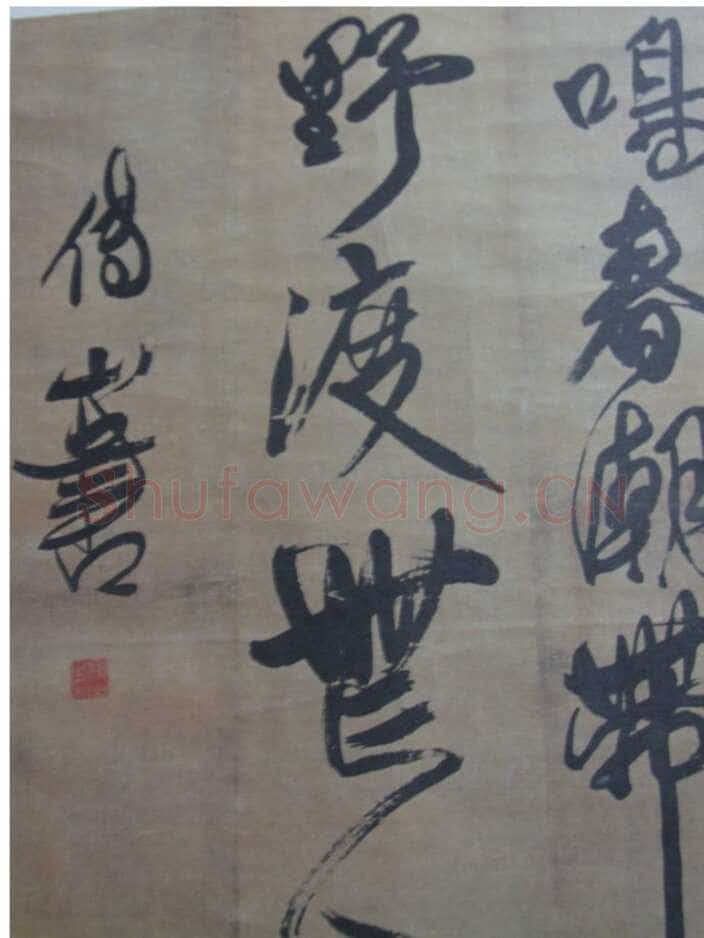 鳴春潮帶
野渡無人
Shufawang.CN